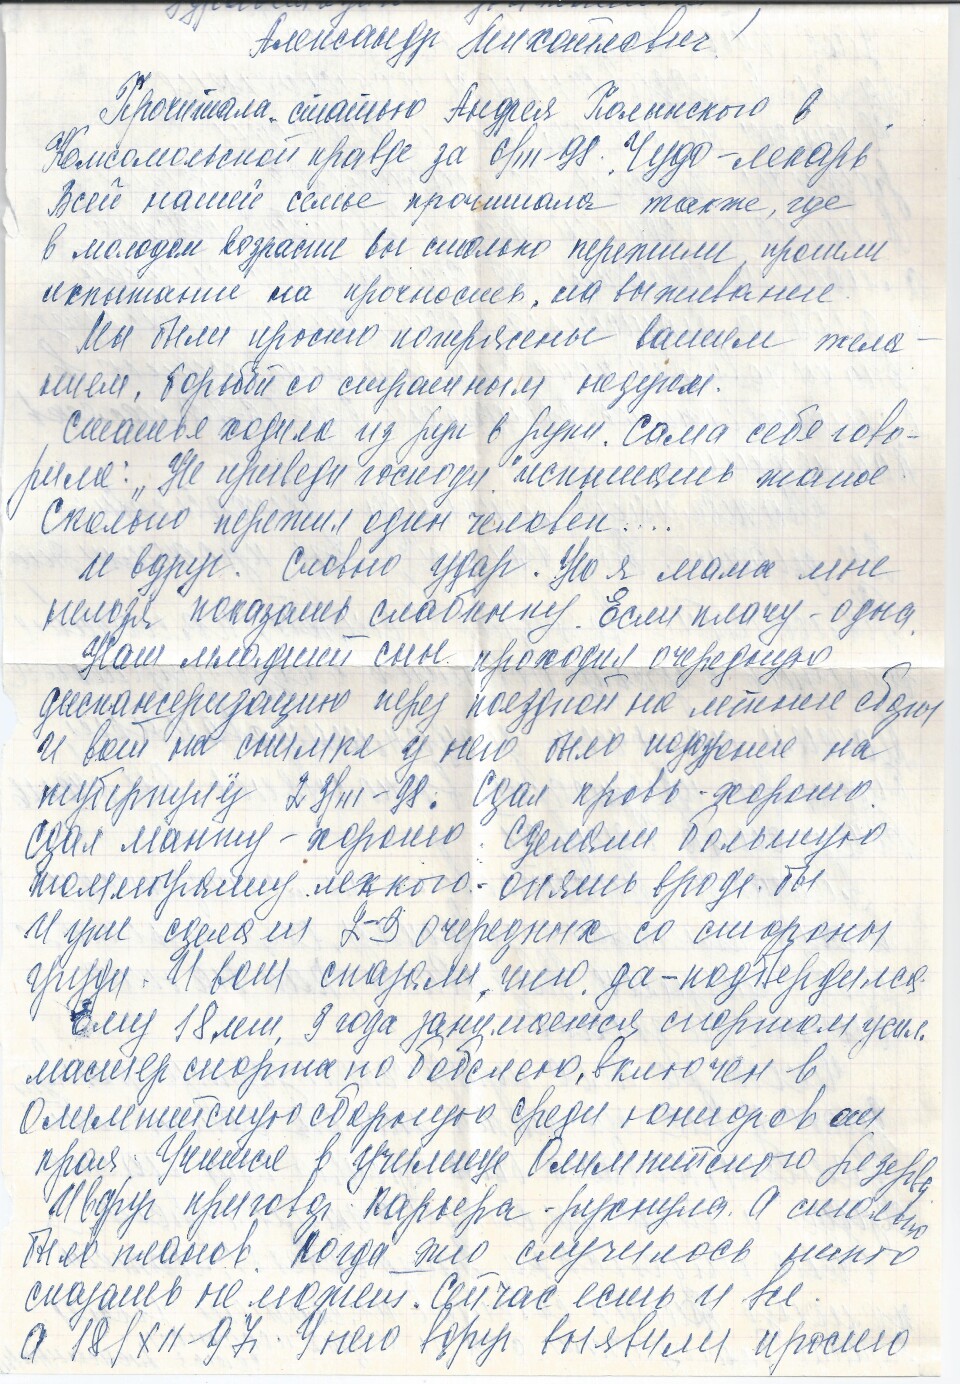 Александр Михайлович!
Прочитала статью Андрея Полынского в
Комсомольской правде за 6/III-98. "Чудо-лекарь"
Всей нашей семье прочитала также, где
в молодом возрасте вы столько пережили, прошли
испытание на прочность, на выживание.
Мы были просто потрясены вашем жела-
нием, борьбой со страшным недугом.
Статья ходила из рук в руки. Сама себе гово-
рила: "Не приведи господи" испытать такое.
Сколько пережил один человек....
И вдруг. Словно удар. Но я мама мне
нельзя показать слабинку. Если плачу - одна.
Наш младший сын проходил очередную
диспансеризацию перед поездкой на летние сборы
И вот на снимке у него было подозрение на
туберкулёз 2 -98. Сдал кровь - хорошо.
Сдал манту - хорошо. Сделали большую
томмограмму легкого - опять вроде бы
И уже сделали 2-3 очередных со стороны
груди. И вот сказали, что, да - подтвердился
Ему 18 лет, 3 года занимается спортом
мастер спорта по бобслею, включен в
Олимпийскую сборную среди юниоров от
края. Учится в училище Олимпийского резерва
И вдруг приговор. Карьера - рухнула. А столько
было планов. Когда это случилось никто
сказать не может. Сейчас есть и все.
А 18/XII-97. У него вдруг выявили просто